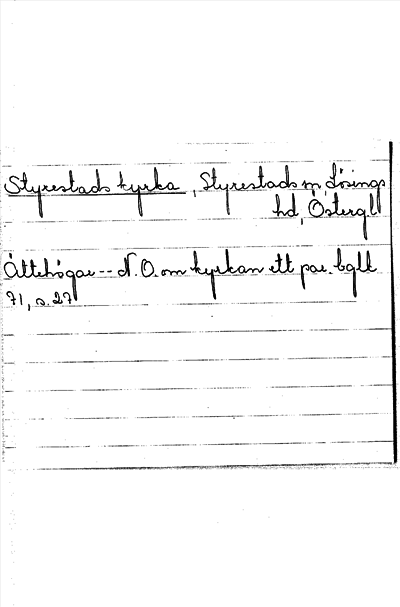 Styrestads kyrka, Styrestads sn, Lösings
hd, Östergl
Ättehögar -- N.O. om kyrkan ett par.
71, s. 27